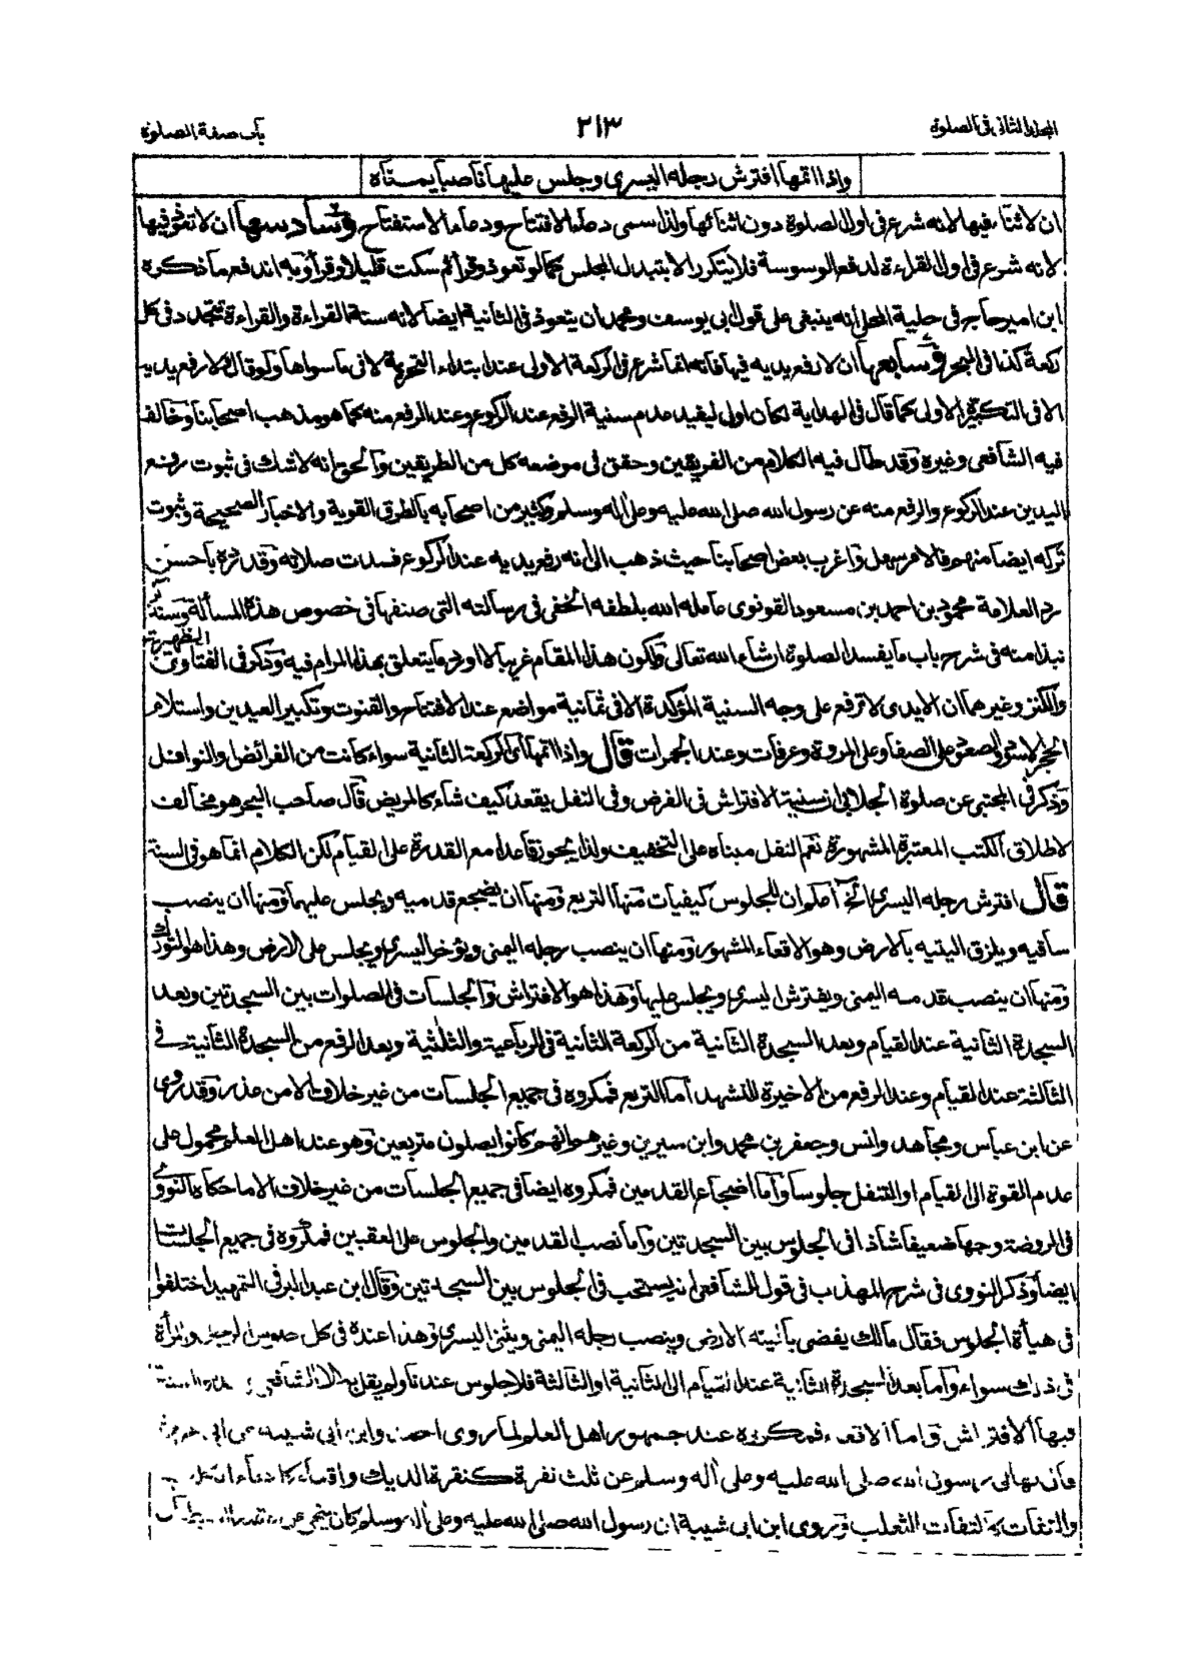 المجلد الثانى فى الصلوة
٢١٣
باب صفة الصلوة
واذا اتمها افترش رجله اليسرى وجلس عليها ناصبا يمناه
ان لا ثناء فيها لانه شرع فى اول الصلوة دون اثنائها ولذا سمى دعاء الافتتاح ودعاء الاستفتاح وسادسها ان لا تعوذ فيها
لانه شرع فى اول القراءة لدفع الوسوسة فلا يتكرر الا بتبدل المجلس كما لو تعوذ وقرأ ثم سكت قليلا وقرأ وبه اندفع ما ذكره
ابن امير حاج فى حلية المحلى انه ينبغى على قول ابى يوسف ومحمد ان يتعوذ فى الثانية ايضا لانه سنة القراءة والقراءة تتجدد فى كل
ركعة كذا فى البحر وسابعها ان لا رفع يديه فيها فانه انما شرع فى الركعة الاولى عند ابتداء التحريمة لا فى ما سواها ولو قال الا رفع يديه
الا فى التكبيرة الاولى كما قال فى الهداية لكان اولى ليفيد عدم سنية الرفع عند الركوع وعند الرفع منه كما هو مذهب اصحابنا وخالف
فيه الشافعى وغيره وقد طال فيه الكلام من الفريقين وحقق فى موضعه كل من الطريقين والحق انه لا شك فى ثبوت رفع
اليدين عند الركوع والرفع منه عن رسول الله صلى الله عليه وعلى آله وسلم وكثير من اصحابه بالطرق القوية والاخبار الصحيحة وثبوت
تركه ايضا منهم فالامر سهل واغرب بعض اصحابنا حيث ذهب الى انه رفع يديه عند الركوع فسدت صلاته وقد رده باحسن
رد العلامة محمود بن احمد بن مسعود القونوى عامله الله بلطفه الخفى فى رسالته التى صنفها فى خصوص هذه المسألة وسنذكر
نبذا منه فى شرح باب ما يفسد الصلوة ان شاء الله تعالى ولكون هذا المقام غريبا لا اورد ما يتعلق بهذا المرام فيه وذكر فى الفتاوى الظهيرية
والكنز وغيرهما ان الايدى لا ترفع على وجه السنية المؤكدة الا فى ثمانية مواضع عند الافتتاح والقنوت وتكبير العيدين واستلام
الحجر الاسود والصعود على الصفا وعلى المروة وعرفات وعند الجمرات قال واذا اتمها اى الركعة الثانية سواء كانت من الفرائض والنوافل
وذكر فى المجتبى عن صلوة الجلابى ان سنية الافتراش فى الفرض وفى النفل يقعد كيف شاء كالمريض قال صاحب البحر هو مخالف
لاطلاق الكتب المعتبرة المشهورة نعم النفل مبناه على التخفيف ولذا يجوز قاعدا مع القدرة على القيام لكن الكلام انما هو فى السنة
قال افترش رجله اليسرى الخ اعلم ان للجلوس كيفيات منها التربع ومنها ان يضجع قدميه ويجلس عليهما ومنها ان ينصب
ساقيه ويلزق اليتيه بالارض وهو الاقعاء المشهور ومنها ان ينصب رجله اليمنى ويؤخر اليسرى ويجلس على الارض وهذا هو التورك
ومنها ان ينصب قدمه اليمنى ويفترش اليسرى ويجلس عليها وهذا هو الافتراش والجلسات فى الصلوات بين السجدتين وبعد
السجدة الثانية عند القيام وبعد السجدة الثانية من الركعة الثانية فى الرباعية والثلثية وبعد الرفع من السجدة الثانية فى
الثالثة عند القيام وعند الرفع من الاخيرة للتشهد اما التربع فمكروه فى جميع الجلسات من غير خلاف الا من عذر وقد روى
عن ابن عباس ومجاهد وانس وجعفر بن محمد وابن سيرين وغيرهم انهم كانوا يصلون متربعين وهو عند اهل العلم محمول على
عدم القوة الى القيام او التنفل جلوسا واما اضجاع القدمين فمكروه ايضا فى جميع الجلسات من غير خلاف الا ما حكاه النووى
فى الروضة وجها ضعيفا شاذا فى الجلوس بين السجدتين واما نصب القدمين والجلوس على العقبين فمكروه فى جميع الجلسات
ايضا وذكر النووى فى شرح المهذب فى قول للشافعى انه يستحب فى الجلوس بين السجدتين وقال ابن عبد البر فى التمهيد اختلفوا
فى هيأة الجلوس فقال مالك يفضى باليته الارض وينصب رجله اليمنى ويثنى اليسرى وهذا عنده فى كل جلوس الرجل والمرأة
فى ذلك سواء واما بعد السجدة الثانية عند القيام الى الثانية او الثالثة فلا جلوس عندنا ولم يقل به الا الشافعى
فيها الافتراش واما الاقعاء فمكروه عند جمهور اهل العلم لما روى احمد وابن ابى شيبة عن ابى
نهانى رسول الله صلى الله عليه وعلى آله وسلم عن ثلث نقرة كنقرة الديك واقعاء كاقعاء الكلب
والتفات كالتفات الثعلب وروى ابن ابى شيبة ان رسول الله صلى الله عليه وعلى آله وسلم كان ينهى عن